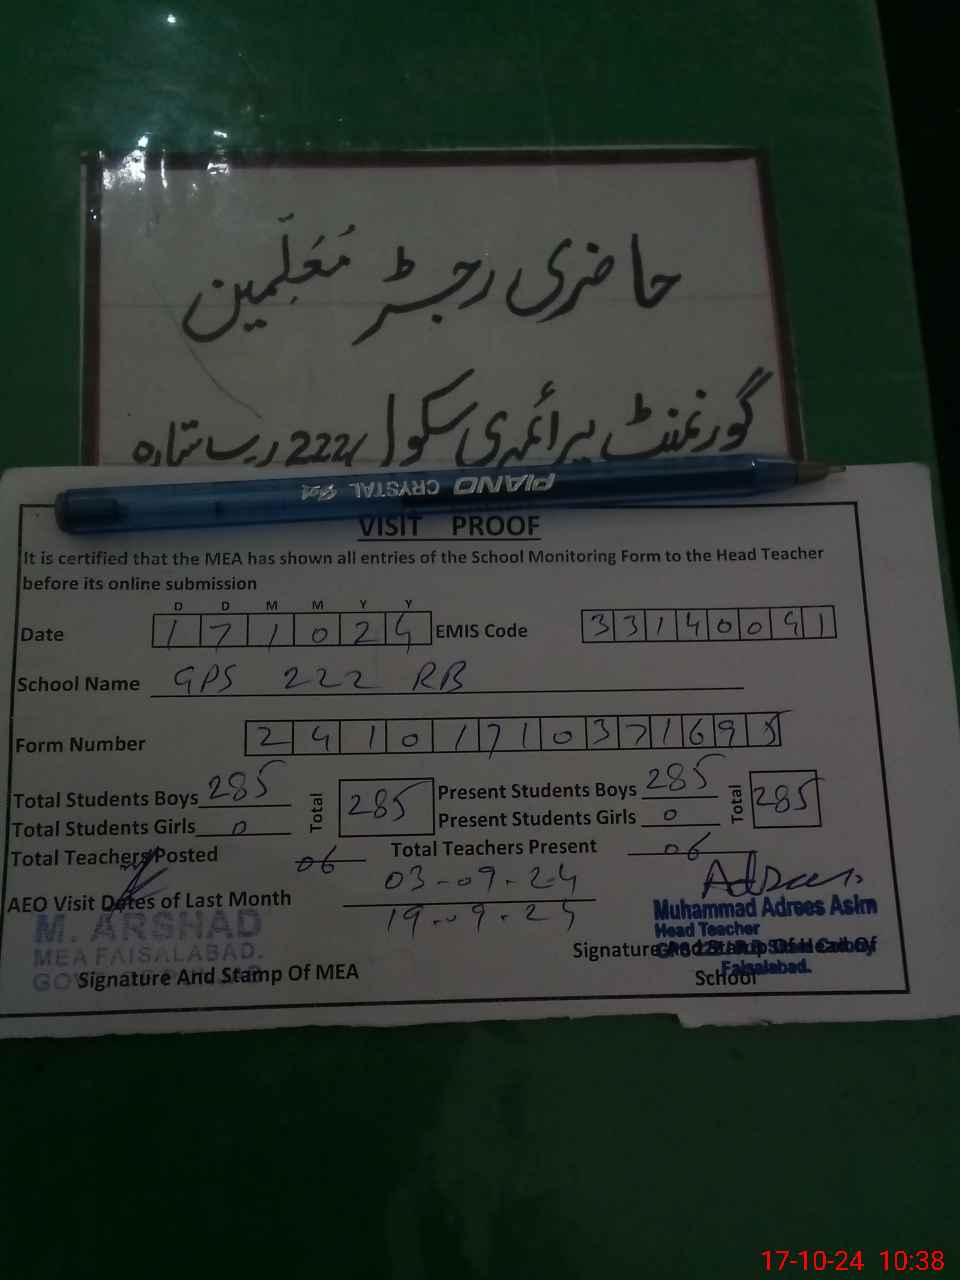 حاضری رجسٹر مُعَلِّمین
گورنمنٹ پرائمری سکول 222 ر ب ستارہ
PIANO CRYSTAL
VISIT PROOF
It is certified that the MEA has shown all entries of the School Monitoring Form to the Head Teacher
before its online submission
D D M M Y Y
Date 1 7 1 0 2 4 EMIS Code 3 3 1 4 0 0 4 1
School Name GPS 222 RB
Form Number 2 4 1 0 1 7 1 0 3 7 1 6 9 5
Total Students Boys 285 Total 285 Present Students Boys 285 Total 285
Total Students Girls 0 Present Students Girls 0
Total Teachers Posted 06 Total Teachers Present 06
AEO Visit Dates of Last Month 03-09-24
19-09-24
M. ARSHAD
MEA FAISALABAD.
Signature And Stamp Of MEA
Adrees
Muhammad Adrees Asim
Head Teacher
Signature And Stamp Of Head Of
School
Faisalabad.
17-10-24 10:38